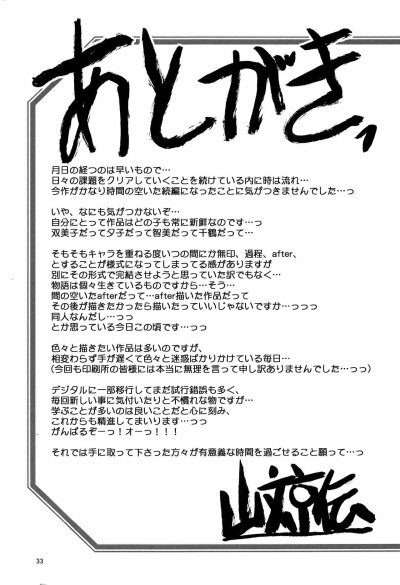 あとがきっ
月日の経つのは早いもので…
日々の課題をクリアしていくことを続けている内に時は流れ…
今作がかなり時間の空いた続編になったことに気がつきませんでした…っ
いや、なにも気がつかないぞ…
自分にとって作品はどの子も常に新鮮なのです…っ
双美子だって夕子だって智美だって千鶴だって…っ
そもそもキャラを重ねる度いつの間にか無印、過程、after、
とすることが様式になってしまってる感がありますが
別にその形式で完結させようと思っていた訳でもなく…
物語は個々生きているものですから…そう…
間の空いたafterだって…after描いた作品だって
その後が描きたかったら描いたっていいじゃないですか…っっっ
同人なんだし…っっ
とか思っている今日この頃です…っっ
色々と描きたい作品は多いのですが、
相変わらず手が遅くて色々と迷惑ばかりかけている毎日…
(今回も印刷所の皆様には本当に無理を言って申し訳ありませんでした…っっ)
デジタルに一部移行してまだ試行錯誤も多く、
毎回新しい事に気付いたりと不慣れな物ですが、
学ぶことが多いのは良いことだと心に刻み、
これからも精進してまいります…っっ
がんばるぞーっ！オーっ！！！
それでは手に取って下さった方々が有意義な時間を過ごせること願って…っ
山文京伝
33